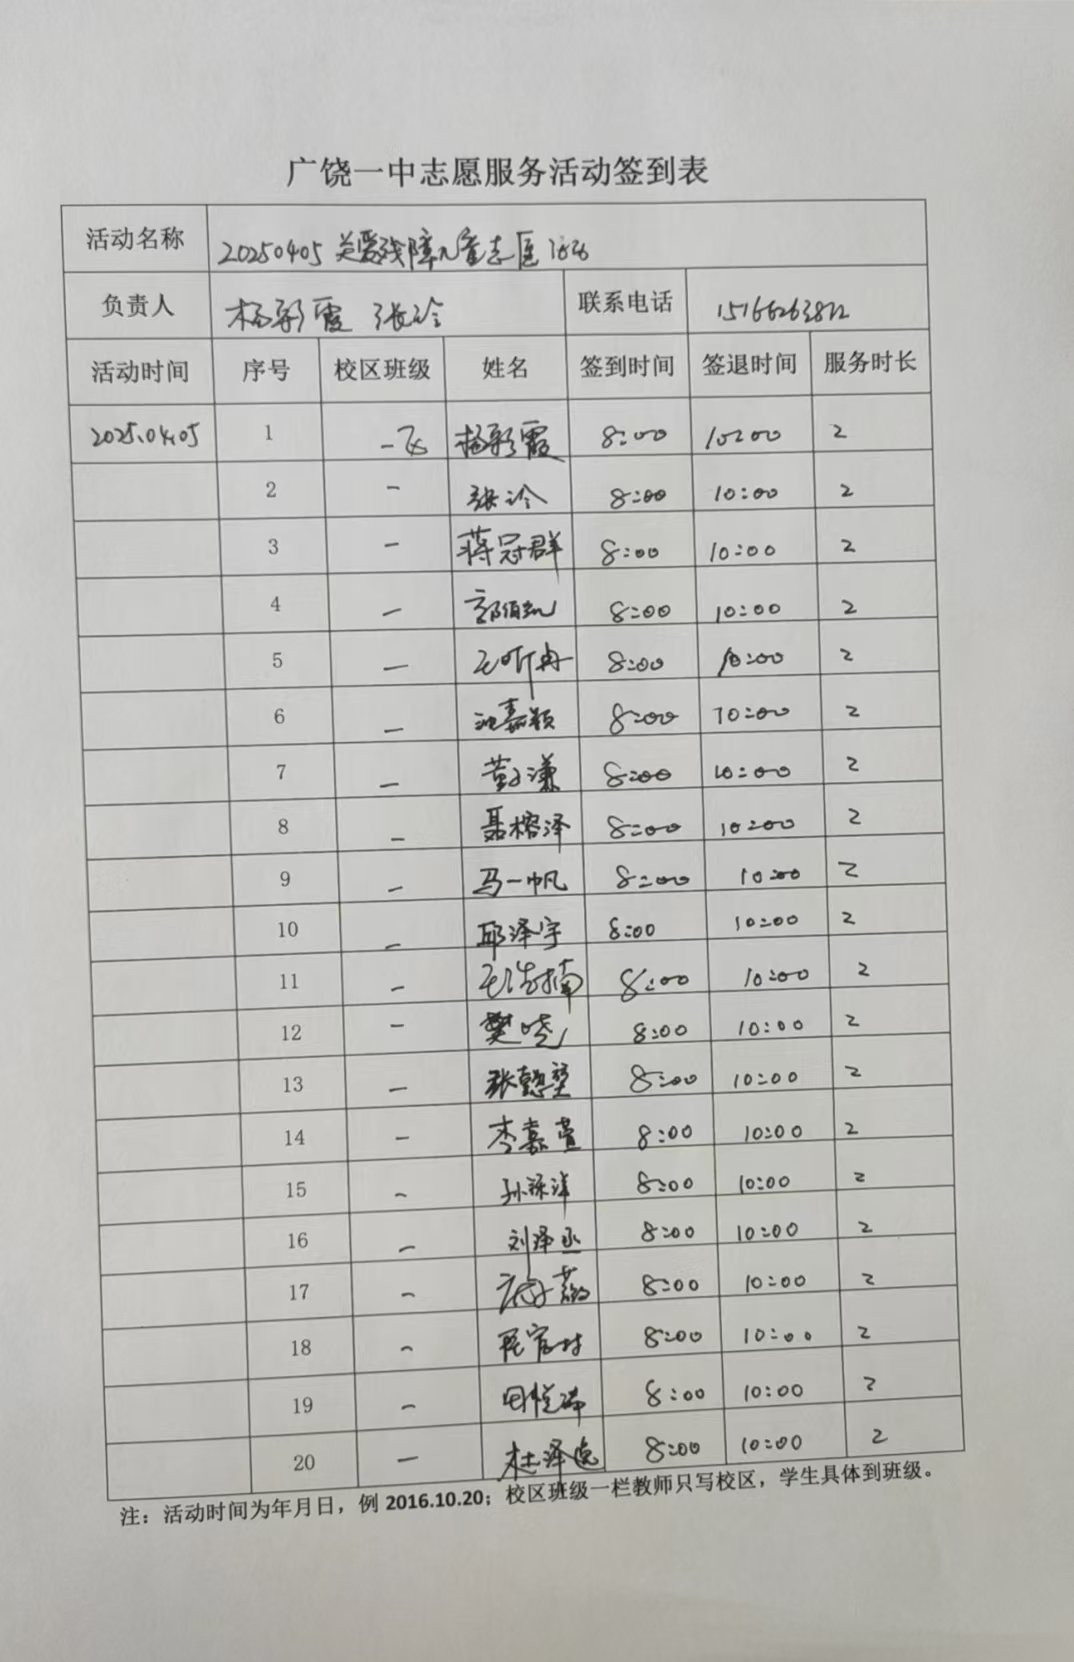 广饶一中志愿服务活动签到表
活动名称 20250405 关爱残障儿童志愿活动
负责人 杨彩霞 张冷 联系电话
活动时间 序号 校区班级 姓名 签到时间 签退时间 服务时长
2025.04.05 1 一 杨彩霞 8:00 10:00 2
2 一 张冷 8:00 10:00 2
3 一 蒋冠群 8:00 10:00 2
4 一 8:00 10:00 2
5 一 王昕冉 8:00 10:00 2
6 一 嘉颖 8:00 10:00 2
7 一 董子谦 8:00 10:00 2
8 一 聂榕泽 8:00 10:00 2
9 一 马一帆 8:00 10:00 2
10 一 邱泽宇 8:00 10:00 2
11 一 王浩楠 8:00 10:00 2
12 一 樊晓 8:00 10:00 2
13 一 张懿堃 8:00 10:00 2
14 一 李嘉萱 8:00 10:00 2
15 一 孙 8:00 10:00 2
16 一 刘泽丞 8:00 10:00 2
17 一 8:00 10:00 2
18 一 8:00 10:00 2
19 一 8:00 10:00 2
20 一 杜泽 8:00 10:00 2
注：活动时间为年月日，例 2016.10.20；校区班级一栏教师只写校区，学生具体到班级。